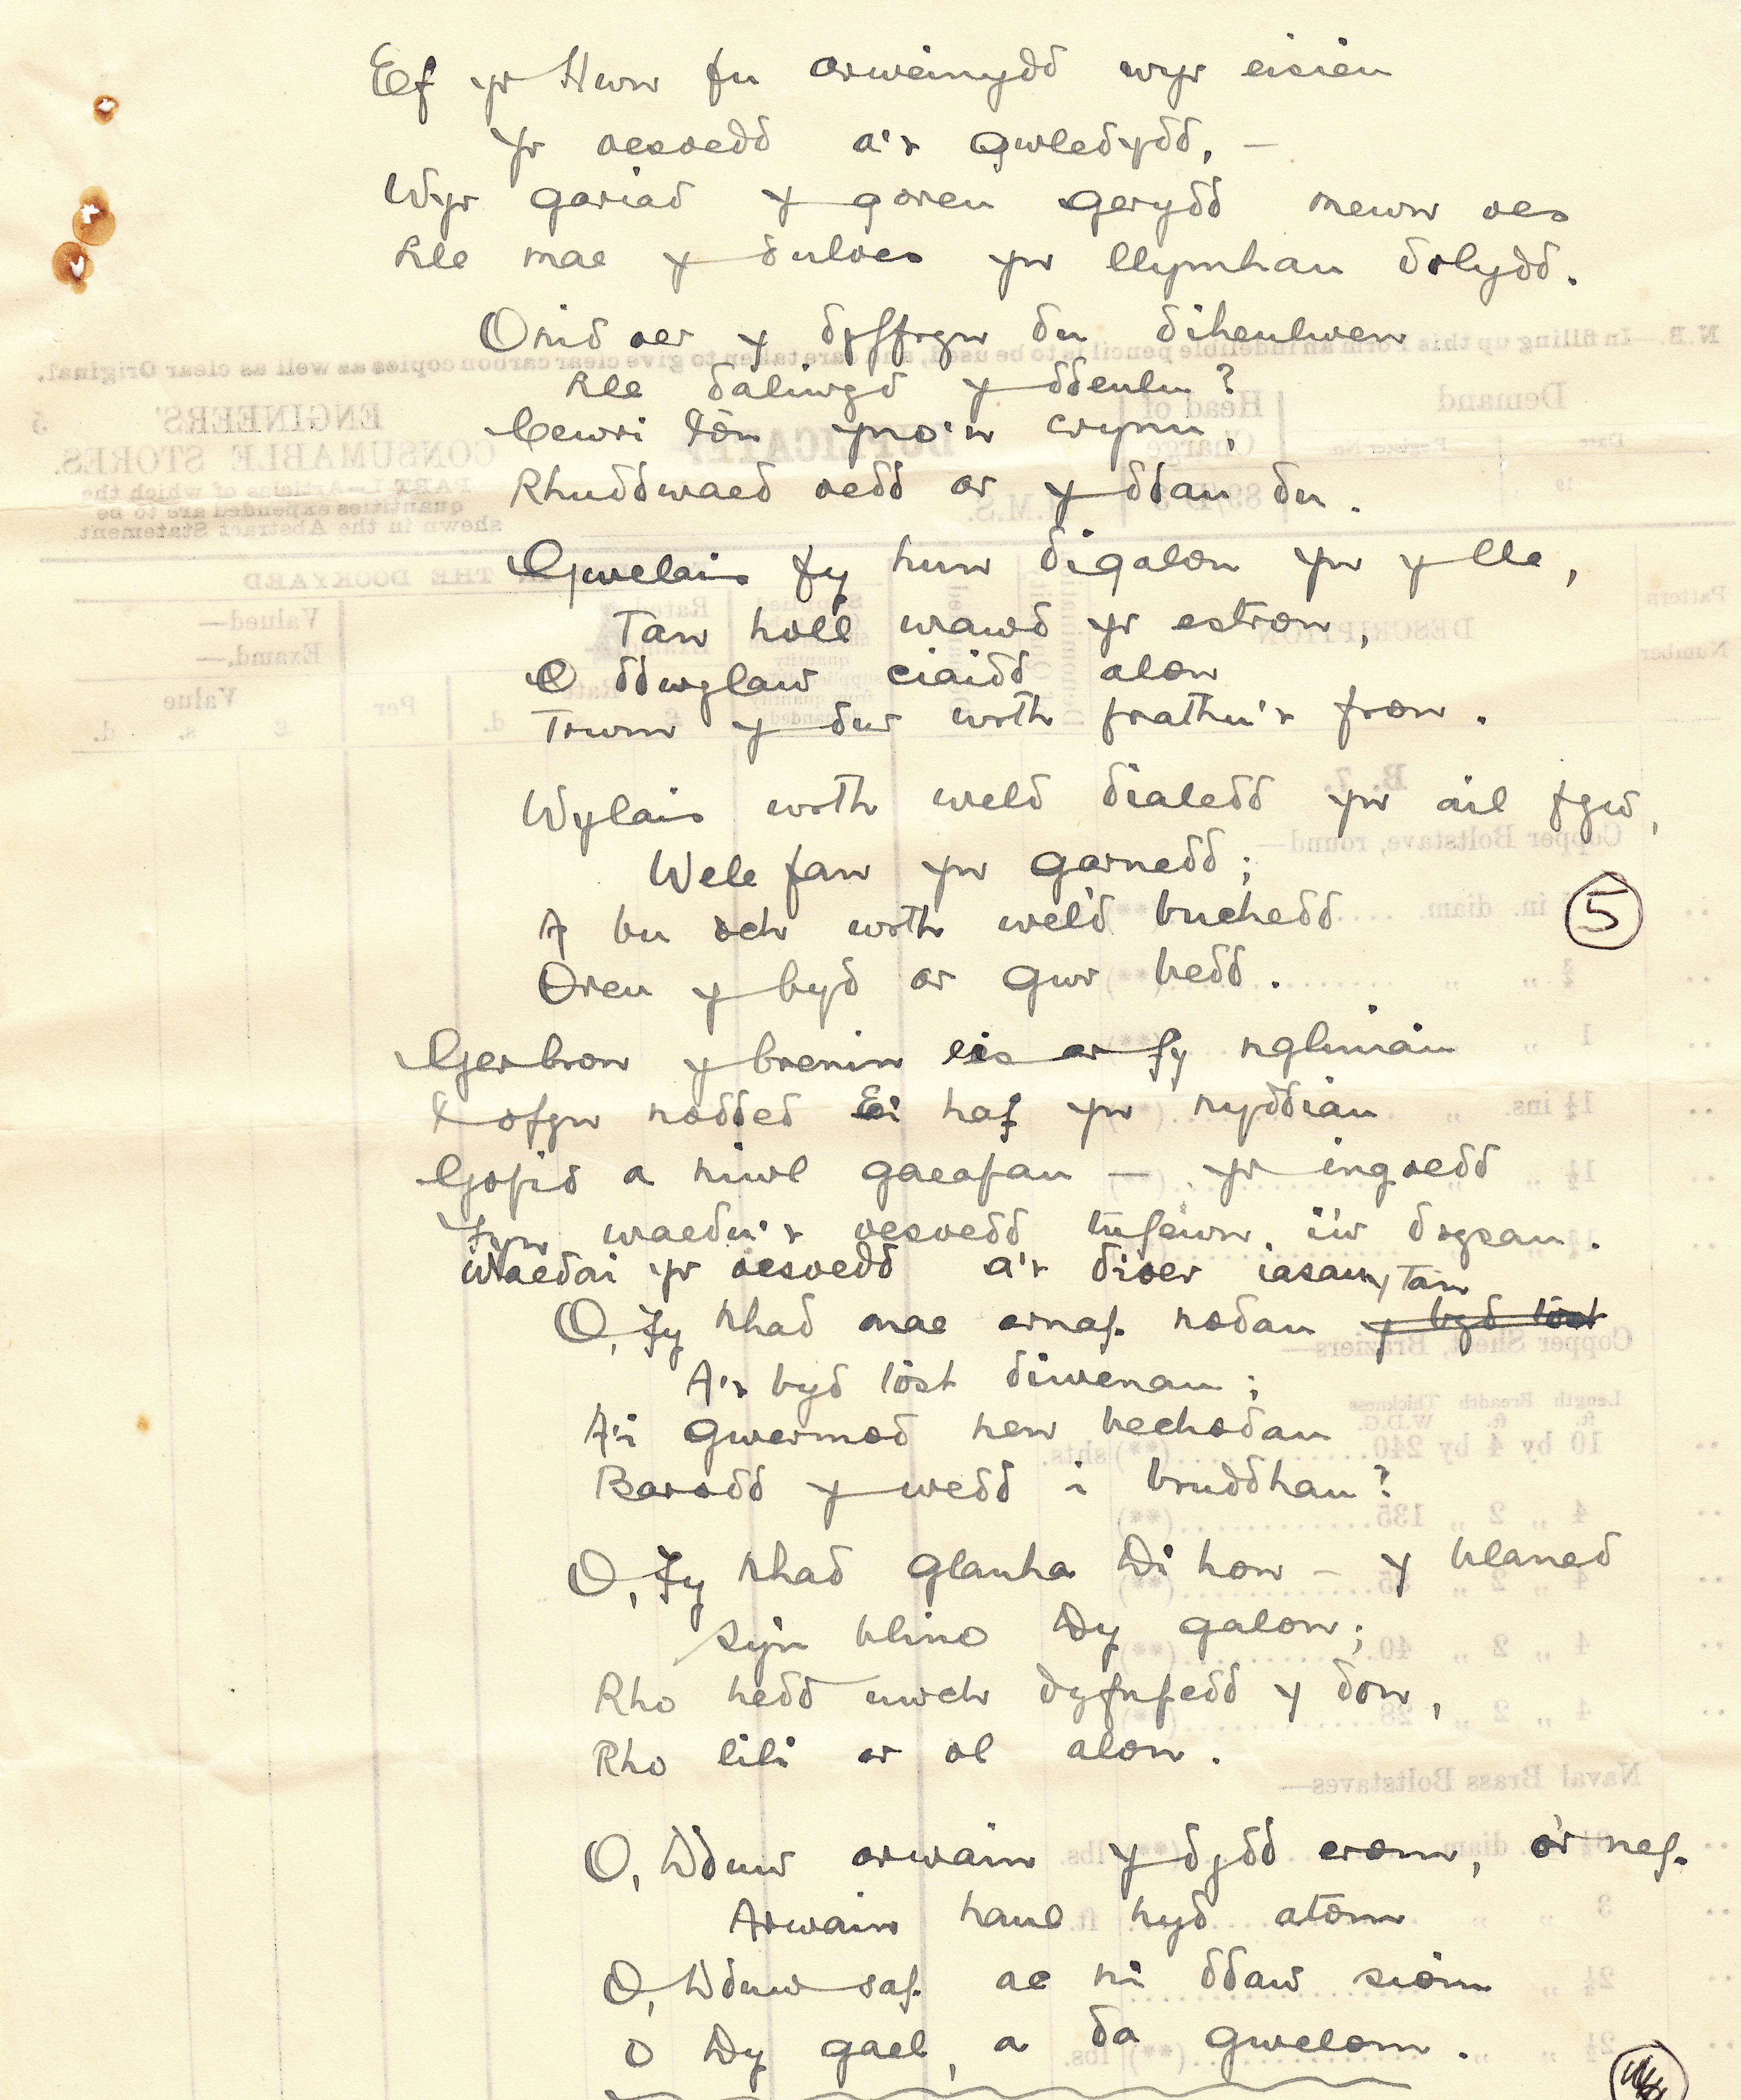 Ef yr Hwn fu arweinydd wyr eisieu
Yr oesoedd a'r gwledydd, —
Wyr gariad y goreu gerydd mewn oes
Lle mae y duloes yn llymhau dolydd.
Onid oer y dyffryn du diheulwen
Lle daliwyd y ddeulu?
Cewri lôn yno'n crynu,
Rhuddwaed oedd ar y ddau du.
Gwelais fy hun digalon yn y lle,
Tan holl wawd yr estron,
O ddwylaw ciaidd alon
Trwm y dur wrth frathu'r fron.
Wylais wrth weld dialedd yn ail fyw,
Wele fan yn garnedd;
A bu och wrth wel'd buchedd
Oreu y byd ar gwr bedd.
5
Gerbron y brenin eis ar fy ngliniau
I ofyn nodded Ei haf yn nyddiau
Gofid a niwl gaeafau — yr ingoedd
Fyn waedu'r oesoedd tufewn i'w drysau.
Waedai yr oesoedd a'r dioer iasau, Tan
O, Fy Nhad mae arnaf nodau y byd tost
A'r byd tost diwenau;
A'i gwermod hen bechodau
Barodd y wedd i bruddhau?
O, Fy Nhad glanha Di hon – y blaned
Sy'n blino Dy galon;
Rho hedd uwch dyfnfedd y don,
Rho lili ar ol alon.
O, Dduw arwain y dydd erom, o'r nef.
Arwain haul hyd atom
O, Dduw saf ac ni ddaw siom
O Dy gael, a da gwelom.